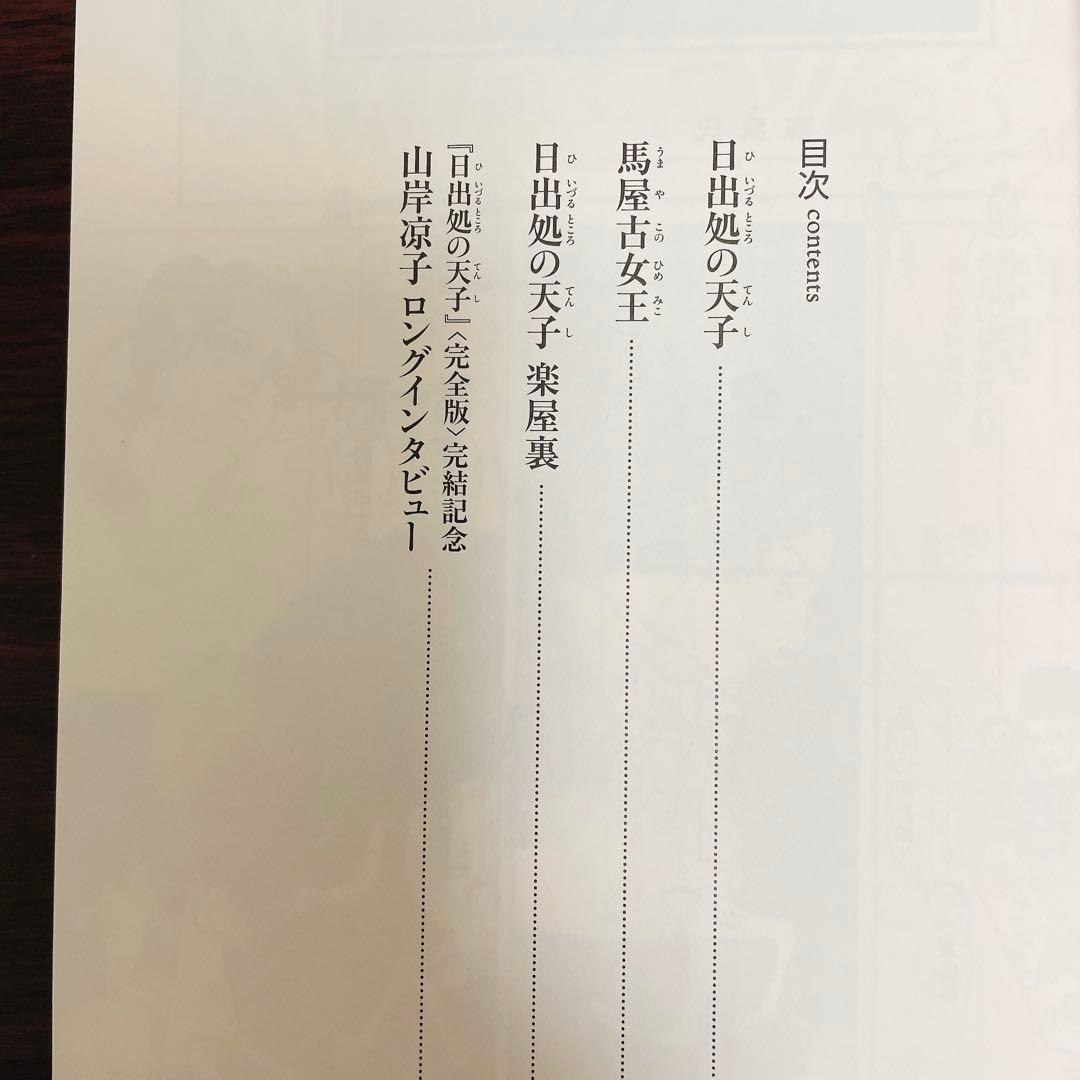 目次 contents
日出処の天子
馬屋古女王
日出処の天子 楽屋裏
『日出処の天子』〈完全版〉完結記念
山岸凉子 ロングインタビュー